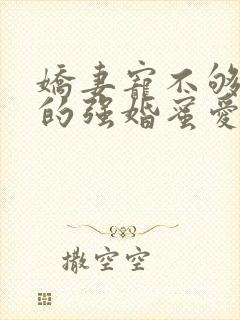 嬌妻寵不够
的强婚蜜愛
撒空空